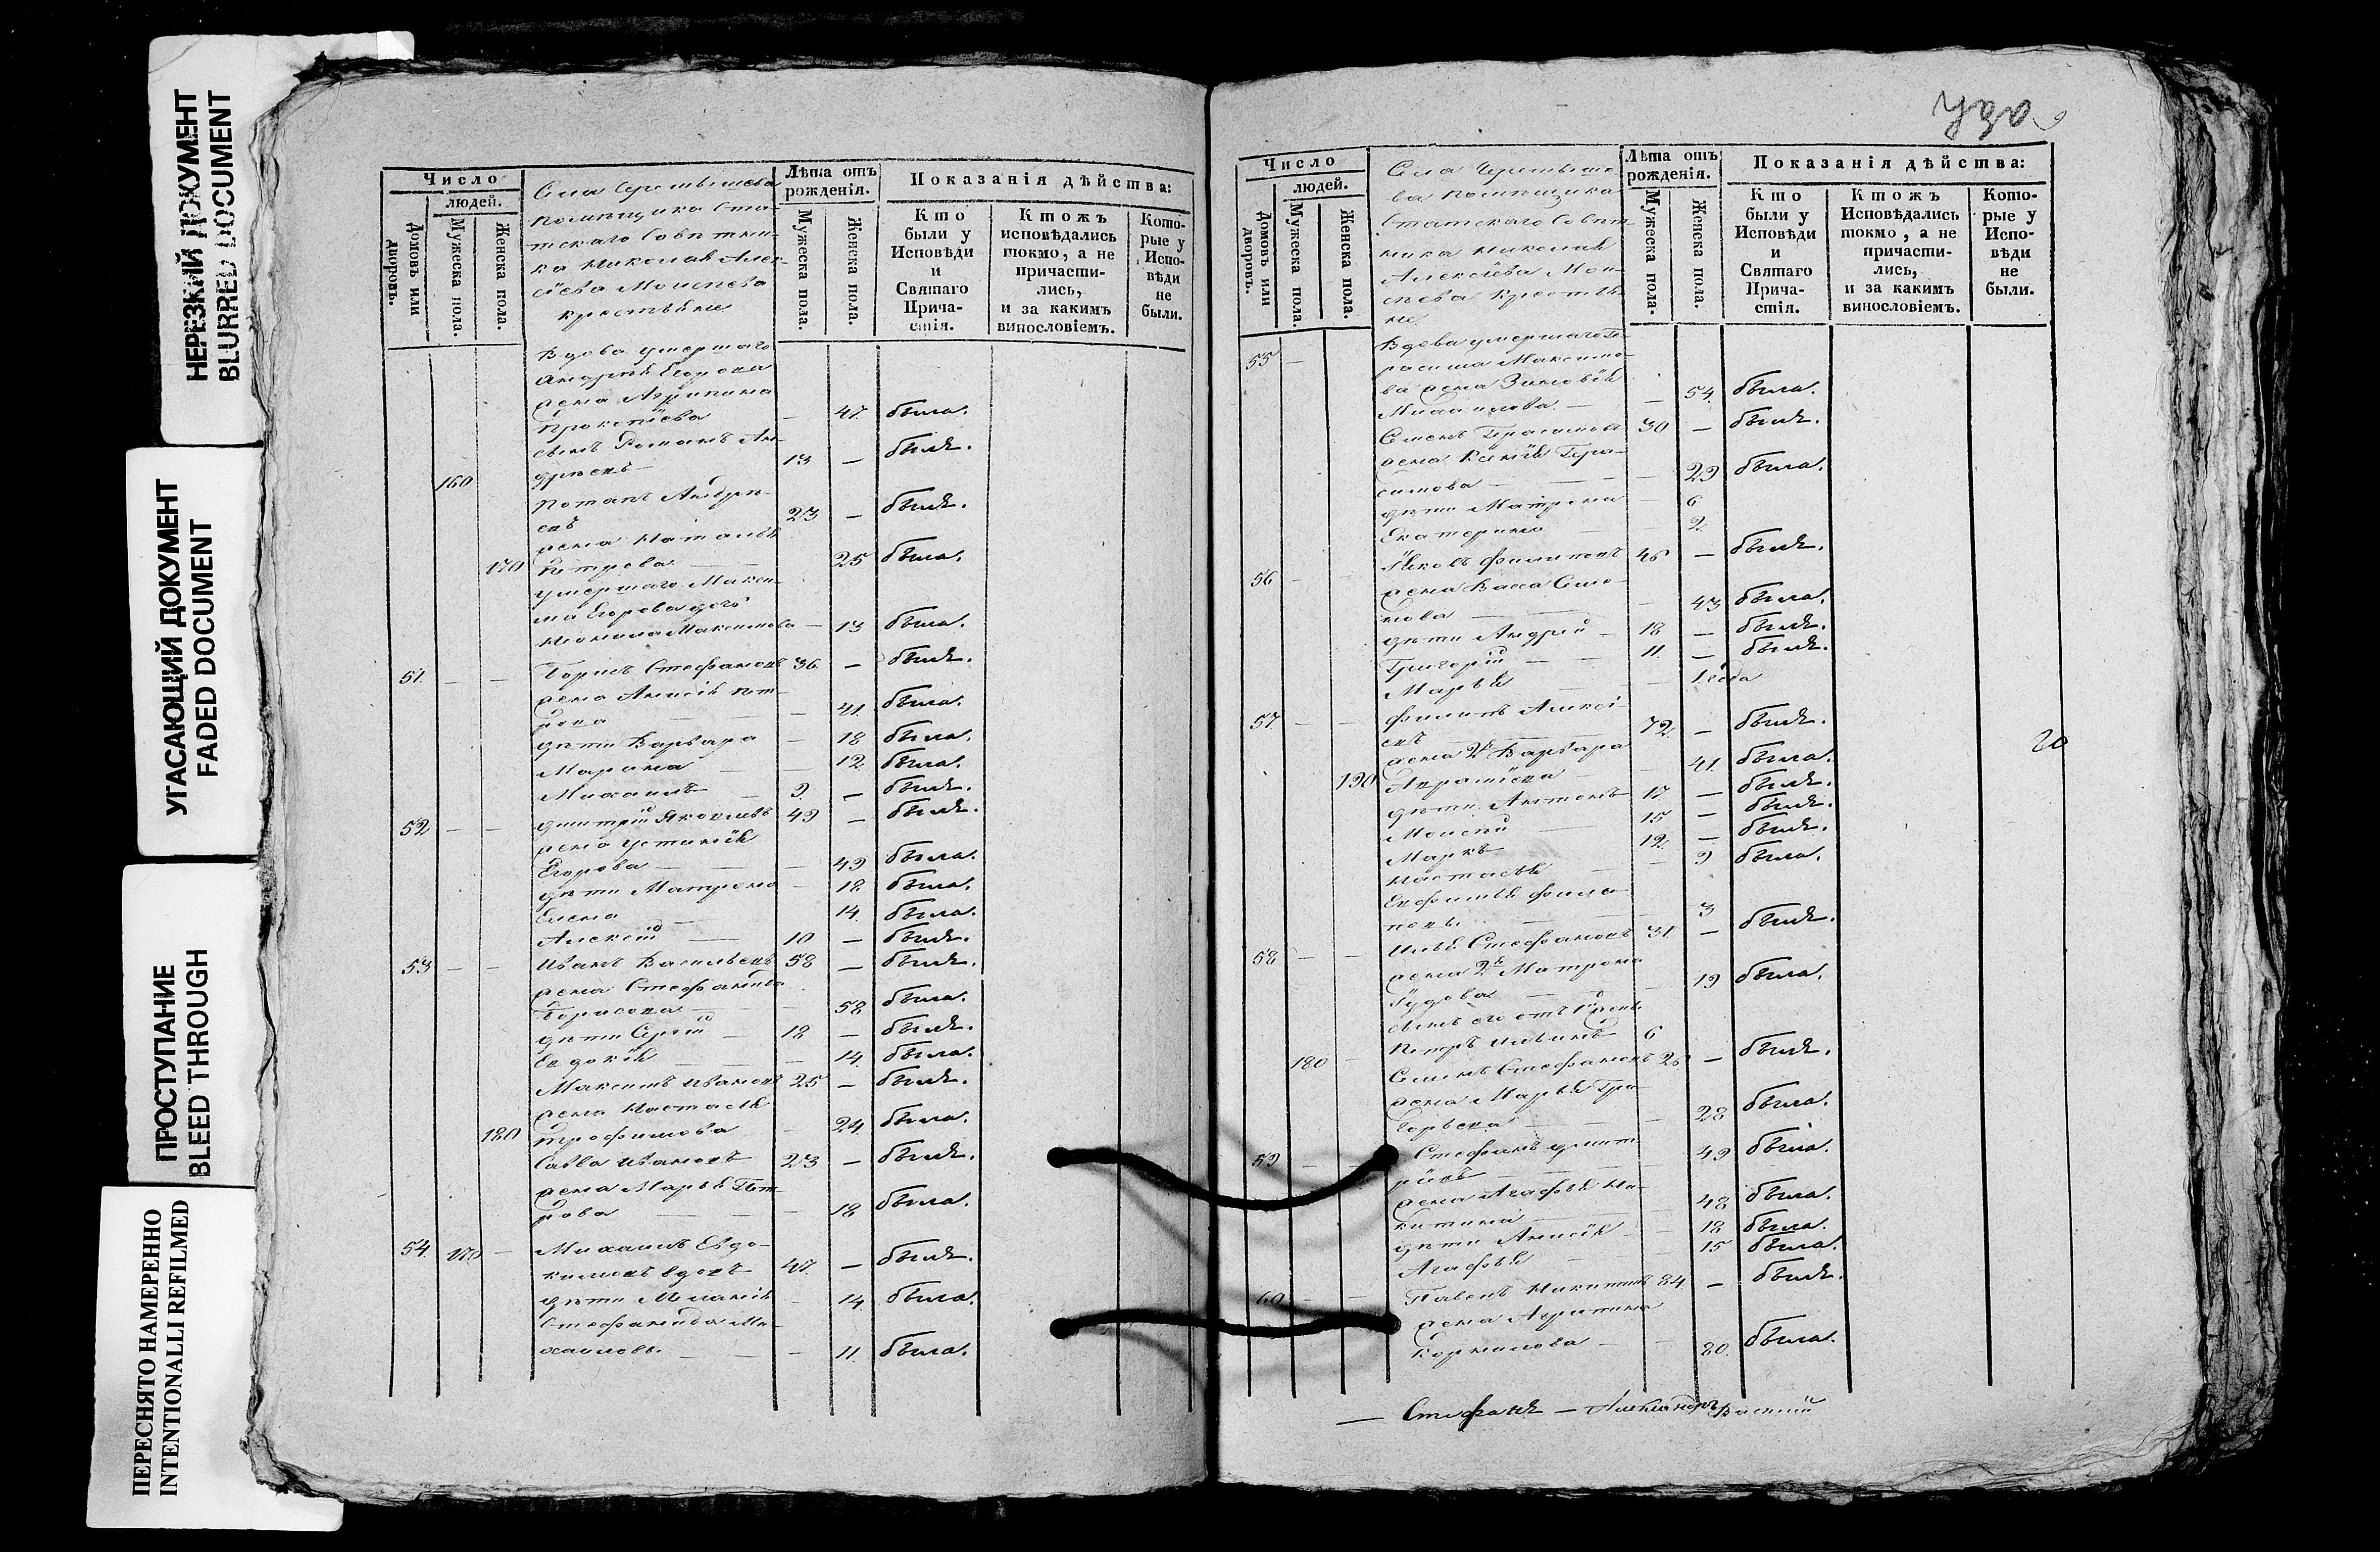 НЕРЕЗКИЙ ДОКУМЕНТ
BLURRED DOCUMENT
УГАСАЮЩИЙ ДОКУМЕНТ
FADED DOCUMENT
ПРОСТУПАНИЕ
BLEED THROUGH
ПЕРЕСНЯТО НАМЕРЕННО
INTENTIONALLI REFILMED
Число
людей.
Домовъ или дворовъ.
Мужеска пола.
Женска пола.
Села
помѣщика Ста-
тскаго Совѣтни-
ка Николая Алек-
сѣева Моисеева
крестьяне
Лѣта отъ рожденія.
Мужеска пола.
Женска пола.
Показанія дѣйства:
Кто были у Исповѣди и Святаго Прича-стія.
Ктожъ исповѣдались токмо, а не причасти-лись, и за какимъ винословіемъ.
Кото-рые у Испо-вѣди не были.
Вдова умершаго
Андрея Егорова
жена Агрипина
Прокопіева — 47. была.
сынъ Романъ Ан-
160 дреевъ — 13 — былъ.
Потапъ Андре-
евъ 23 — былъ.
жена Наталья
170 Петрова — 25 была.
умершаго Макси-
ма Егорова дочь
Неонила Максимова — 13 была.
51. — — Борисъ Стефановъ 36 — былъ.
жена Анисія Пет-
рова — 41. была.
дѣти Варвара — 18 была.
Марина — 12 была.
Михаилъ — 9. — былъ.
52 — — Димитрій Яковлевъ 49 — былъ.
жена Устинія
Егорова — 49 была.
дѣти Матрона — 18 была.
Елена — 14. была.
Алексій — 10 — былъ.
53 — — Иванъ Васильевъ 58 — былъ.
жена Стефанида
Борисова — 58 была.
дѣти Сергій — 18 — былъ.
Евдокія — 14. была.
Максимъ Ивановъ 25 — былъ.
жена Настасья
180 Трофимова — 24. была.
Савва Ивановъ 23 — былъ.
жена Марья Пет-
рова — 18 была.
54. 170 — Михаилъ Евдо-
кимовъ вдовъ 47. — былъ.
дѣти Меланія — 14. была.
Стефанида Ми-
хаиловы — 11. была.
Число
людей.
Домовъ или дворовъ.
Мужеска пола.
Женска пола.
Села
ва помѣщика
Статскаго Совѣт-
ника Николая
Алексѣева Мои-
сеева крестья-
не
Лѣта отъ рожденія.
Мужеска пола.
Женска пола.
Показанія дѣйства:
Кто были у Исповѣди и Святаго Прича-стія.
Ктожъ Исповѣдались токмо, а не причасти-лись, и за какимъ винословіемъ.
Кото-рые у Испо-вѣди не были.
55 — Вдова умершаго Ге-
расима Максимо-
ва жена Зиновія
Михаилова — 54. была.
Семенъ Герасимовъ 30 — былъ.
жена Ксенія Гера-
симова — 29 была.
дѣти Матрена — 6
Екатерина — 2
56 — — Яковъ Филиповъ 46 — былъ.
жена Васса Симо-
нова — 43 была.
дѣти Андрей — 18 — былъ.
Григорій — 11. — былъ.
Марья — 1. года
57. — — Филипъ Алексі-
евъ 72. — былъ.
жена 2я Варвара
190 — 41. была.
дѣти Антонъ 17. — былъ.
Моисей 15 — былъ.
Маркъ 12. — былъ.
Настасья — 9 была.
Евфимья Фили-
повы — 3
58 — — Илья Стефановъ 31. — былъ.
жена 2я Матрона
— 19 была.
сынъ его отъ 1й жены
Петръ Ильинъ 6
180 — Семенъ Стефановъ 26 — былъ.
жена Марья Гри-
горьева — 28 была.
59 — — Стефанъ Димит-
ріевъ — 49 была.
жена Агафья Ни-
китина — 48 была.
дѣти Анисія — 18 была.
Агафья — 15 была.
60 — — Павелъ Никитинъ 84. — былъ.
жена Агрипина
Корнилова — 80. была.
20
— Стефанъ — Александръ